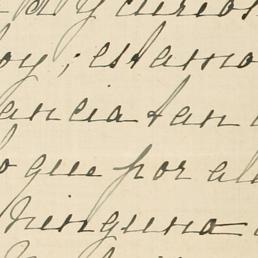 y curios
oy; estamo
ancia tan
lo que por al
ninguna